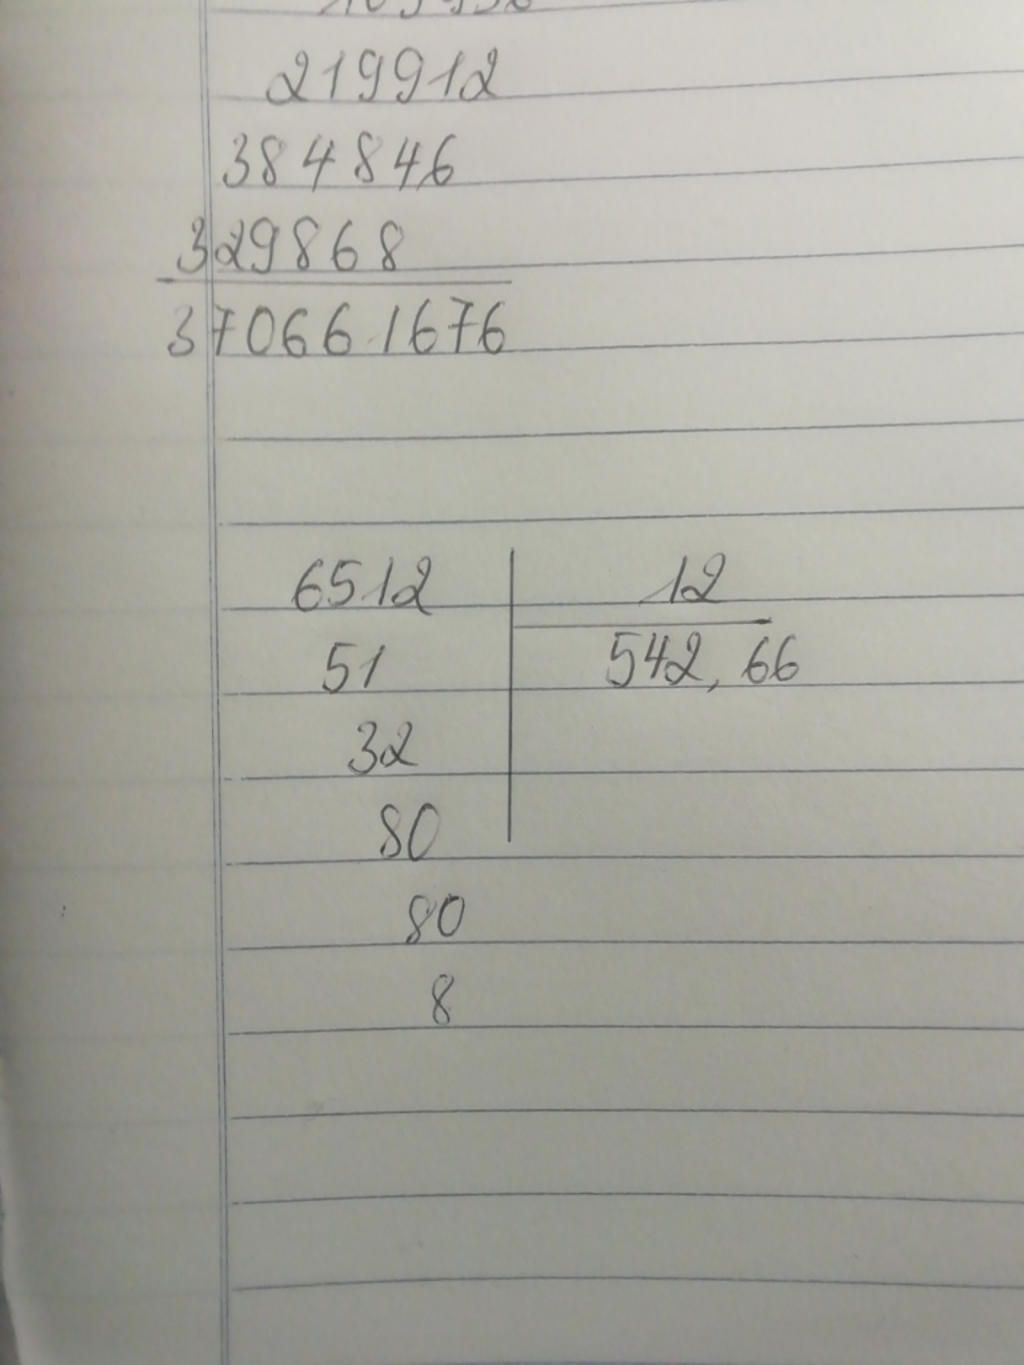 219912
384846
329868
370661676
6512 12
51 542,66
32
80
80
8